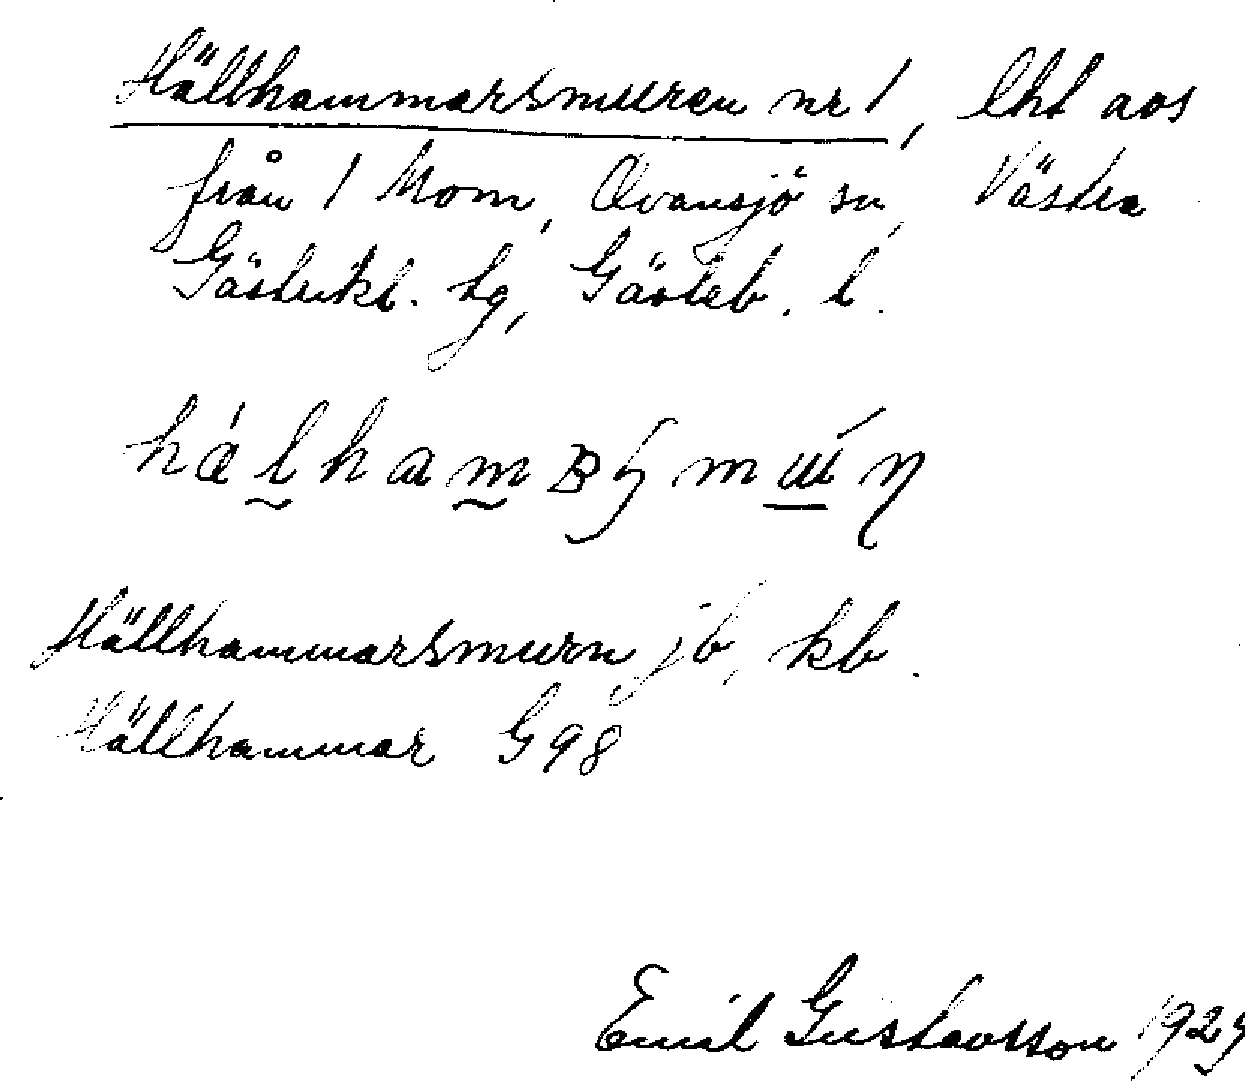 Hällhammarsmuren nr 1, lht avs
från 1 Mom, Ovansjö sn, Västra
Gästrikl. tg, Gävleb. l.
Hällhammarsmurn jb, kb.
Hällhammar G 98
Emil Gustavsson